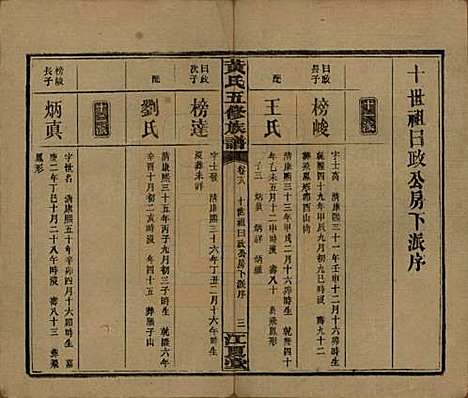 十世祖日政公房下派序
十一派
日政長子
榜峻
字士高 清康熙三十一年壬申十二月十六辰時生
乾隆四十九年甲辰九月初九日時沒 壽九十二
配
王氏
清康熙三十三年甲戌二月十六辰時生
乾隆四十年乙未五月十二申時沒 壽八十 葬飛鳳形
子三 炳真 炳祥 炳繼
黃氏五修族譜
卷六 十世祖日政公房下派序
三
江夏堂
日政次子
榜達
字士發 清康熙三十六年丁丑二月初三
沒葬未詳
配
劉氏
清康熙三十五年九月初三子時生
乾隆六年辛酉十月初二亥時沒 年四十五 葬獅子山
十二派
榜峻長子
炳真
字世榮 清康熙五十年辛卯四月十六戌時生
嘉慶二年丁巳十月二十八午時沒 壽八十三 葬飛鳳形